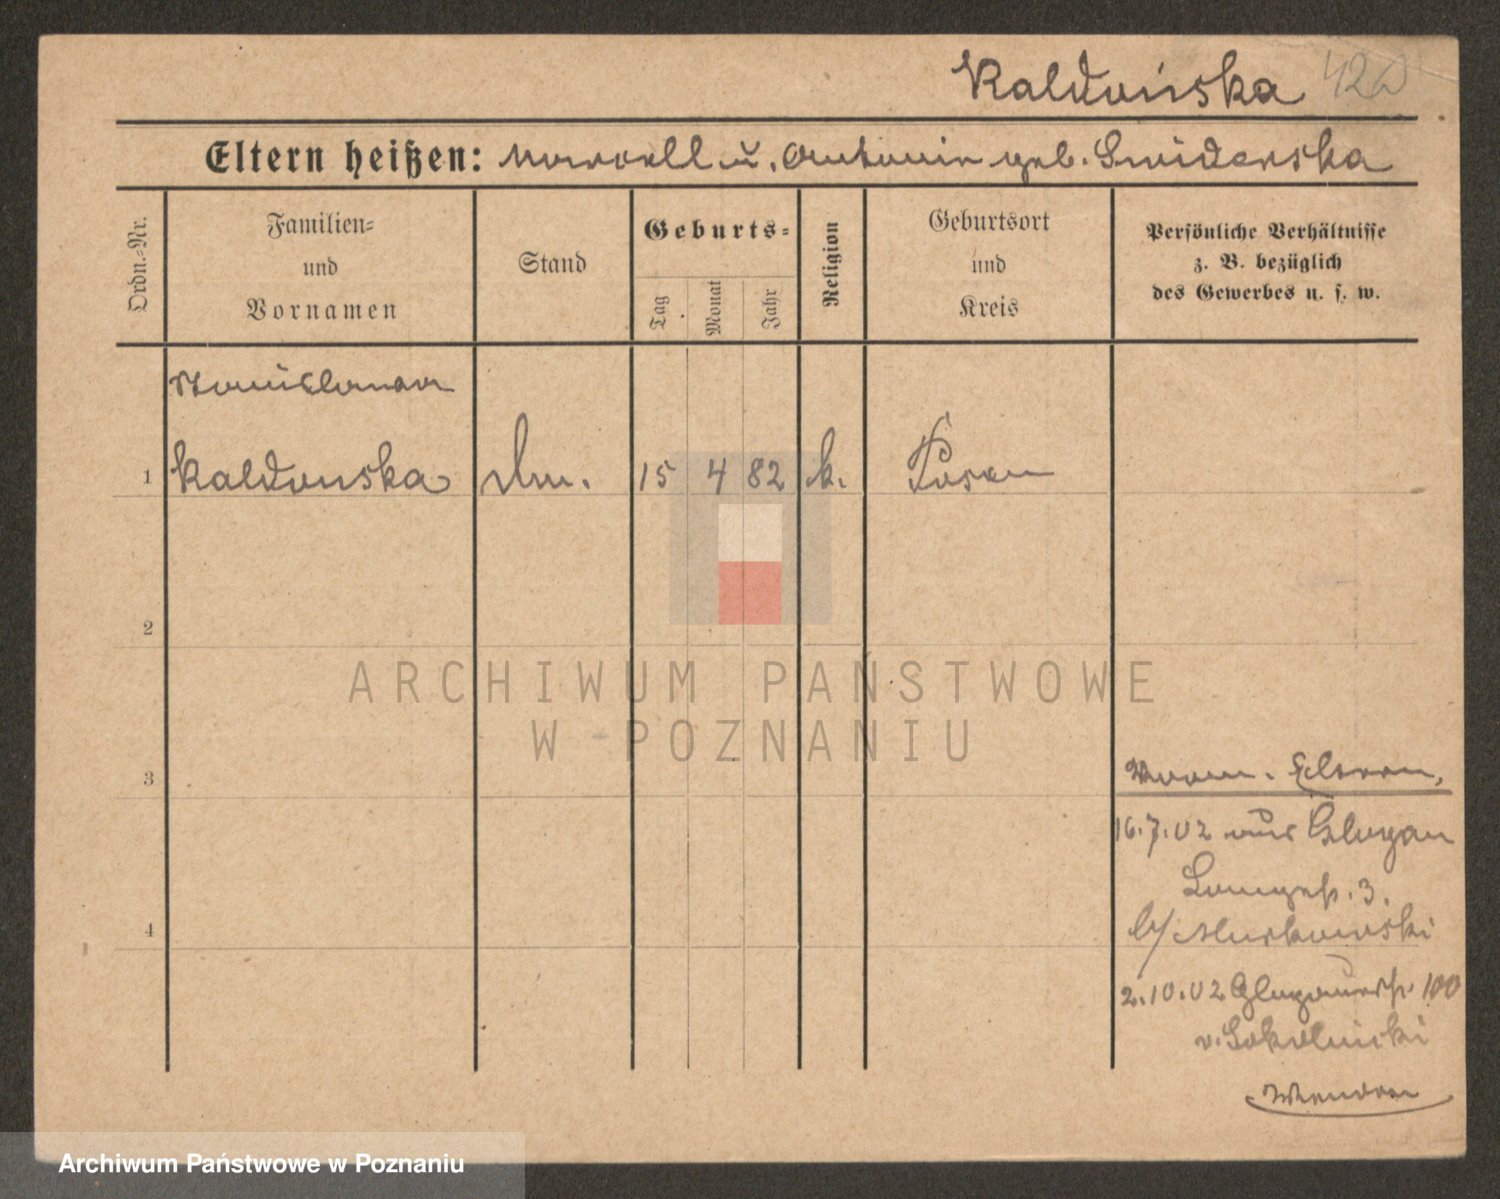 Kałdońska 420
Eltern heißen: Marcell u. Antonin geb. Smiderska
Ordn.-Nr.
Familien-
und
Vornamen
Stand
Geburts-
Tag
Monat
Jahr
Religion
Geburtsort
und
Kreis
Persönliche Verhältnisse
z. B. bezüglich
des Gewerbes u. s. w.
Stanislawa
1 Kałdonska 15 4 82 k. Posen
2
3
Eltern.
16.7.02 aus Glogau
Langestr. 3.
b/ Murkowski
4
2.10.02 Glogauerstr. 100
v. Sokolnicki
ARCHIWUM PAŃSTWOWE
W POZNANIU
Archiwum Państwowe w Poznaniu